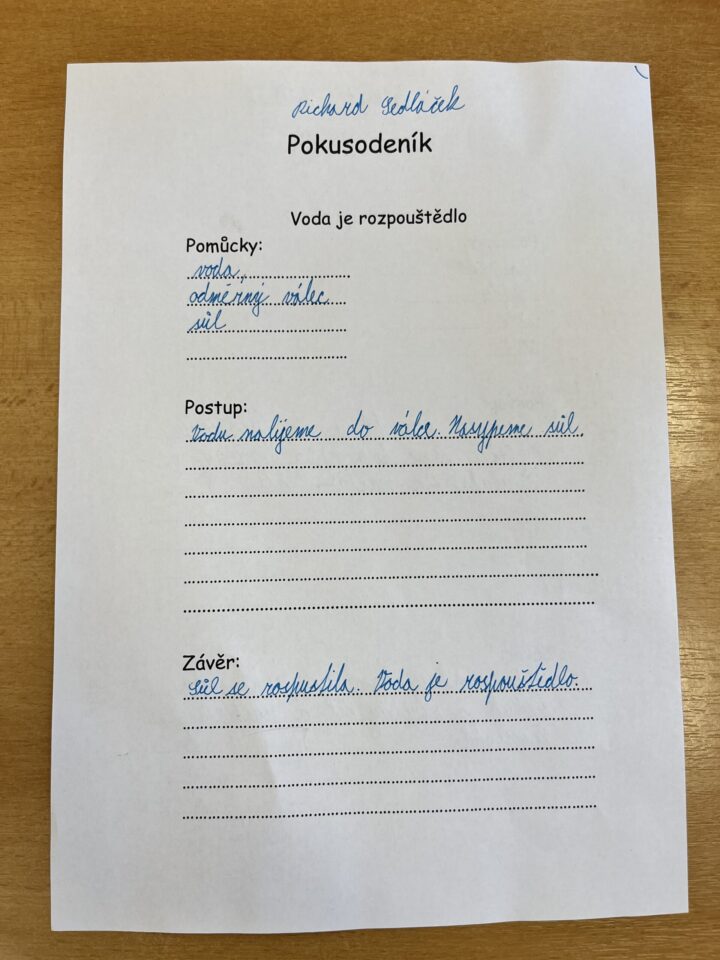 Richard Sedláček
Pokusodeník
Voda je rozpouštědlo
Pomůcky:
voda,
odměrný válec
sůl
Postup:
Vodu nalijeme do válce. Nasypeme sůl.
Závěr:
Sůl se rospustila. Voda je rospouštědlo.